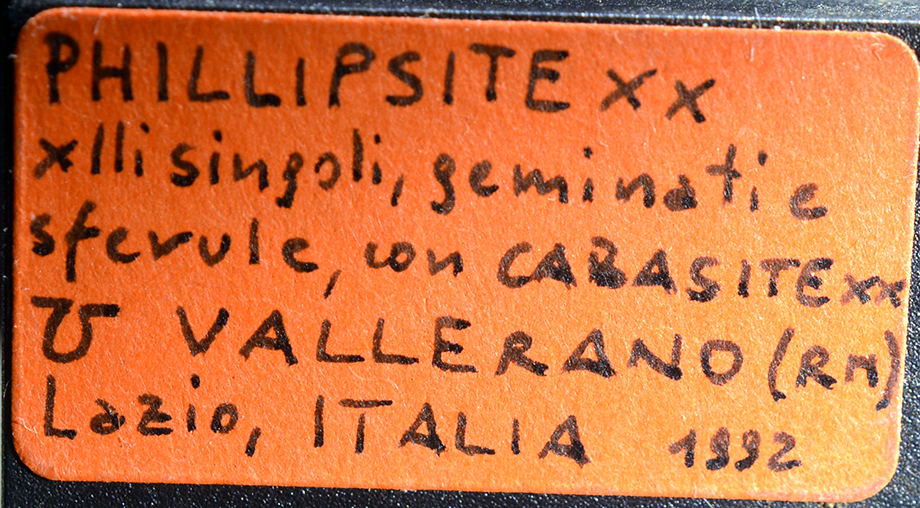 PHILLIPSITE xx
xlli singoli, geminati e
sferule, con CABASITE xx
VALLERANO (RM)
Lazio, ITALIA 1992